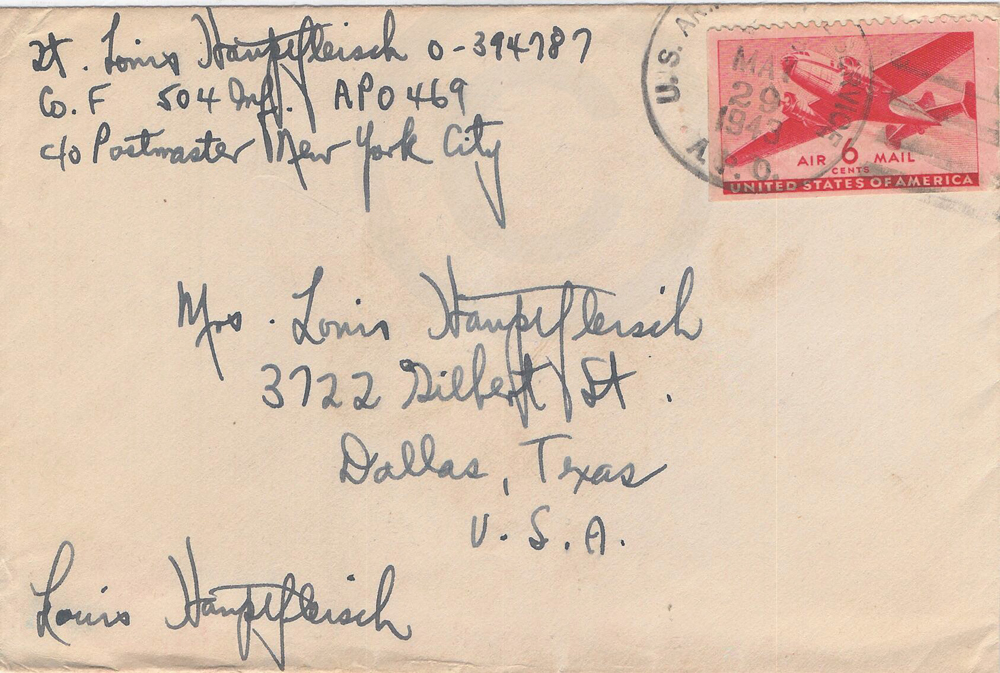 Lt. Louis Hauptfleisch O-394787
Co. F 504 Inf. APO 469
c/o Postmaster New York City
U.S. AR
MAY
29
1943
A.P.O.
AIR 6 MAIL
CENTS
UNITED STATES OF AMERICA
Mrs. Louis Hauptfleisch
3722 Gilbert St.
Dallas, Texas
U.S.A.
Louis Hauptfleisch